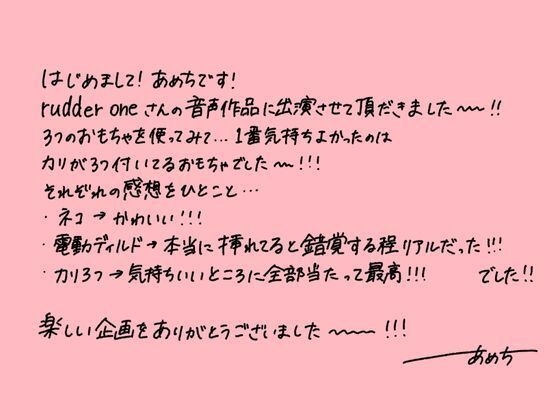 はじめまして！あめちです！
rudder oneさんの音声作品に出演させて頂だきました〜!!
3つのおもちゃを使ってみて…1番気持ちよかったのは
カリが3つ付いてるおもちゃでした〜!!!
それぞれの感想をひとこと…
・ネコ→かわいい!!!
・電動ディルド→本当に挿れてると錯覚する程リアルだった!!!
・カリ3つ→気持ちいいところに全部当たって最高!!! でした!!
楽しい企画をありがとうございました〜〜!!!
あめち